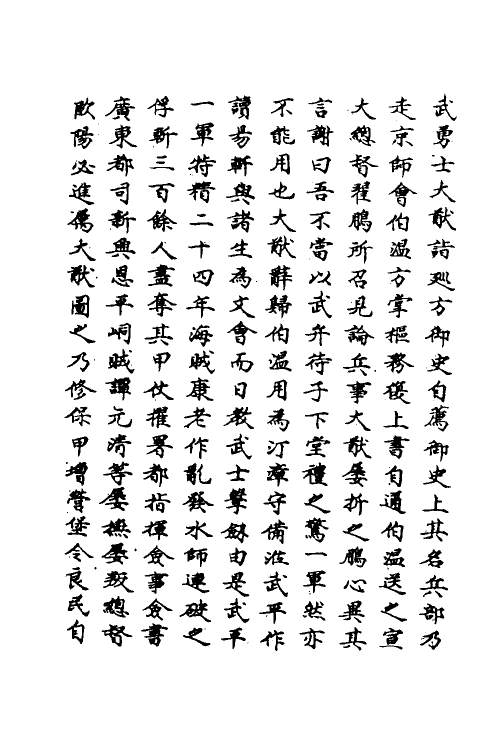 武勇士大猷詣廵方御史自薦御史上其名兵部乃
走京師會伯溫方掌樞務復上書自通伯溫送之宣
大總督翟鵬所召見論兵事大猷屡折之鵬心異其
言謝曰吾不當以武弁待子下堂禮之驚一軍然亦
不能用也大猷辭歸伯溫用為汀漳守備涖武平作
讀易軒與諸生為文會而日教武士擊劔由是武平
一軍特精二十四年海賊康老作亂發水師連破之
俘斬三百餘人盡奪其甲仗擢署都指揮僉事僉書
廣東都司新興恩平峒賊譚元清等屡撫屡叛總督
歐陽必進屬大猷圖之乃修保甲增營堡令良民自